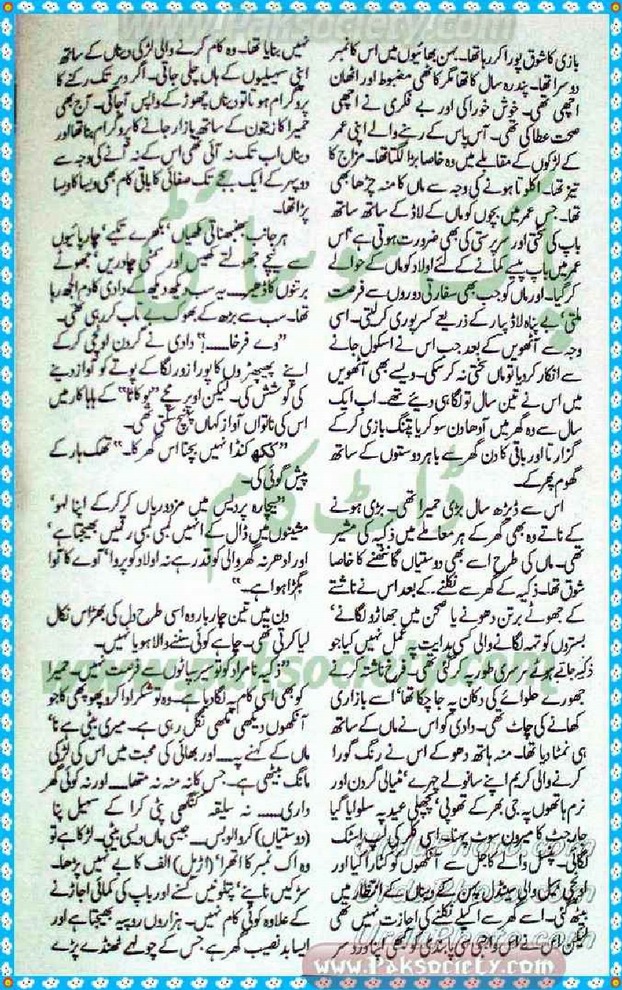 بازی کا شوق پورا کر رہا تھا۔ بہن بھائیوں میں اس کا نمبر
دوسرا تھا۔ پندرہ سال کا تھا مگر کاٹھی مضبوط اور اٹھان
اچھی تھی۔ خوش خوراکی اور بے فکری نے اچھی
صحت عطا کی تھی۔ آس پاس کے رہنے والے اپنی عمر
کے لڑکوں کے مقابلے میں وہ خاصا بڑا لگتا تھا۔ مزاج کا
تیز تھا۔ اکلوتا ہونے کی وجہ سے ماں کا منہ چڑھا بھی
تھا۔ جس عمر میں بچوں کو ماں کے لاڈ کے ساتھ ساتھ
باپ کی سختی اور سرپرستی کی بھی ضرورت ہوتی ہے‘ اس
عمر میں باپ پیسے کمانے کے لئے اولاد کو ماں کے حوالے
کر گیا۔ اور ماں تو جب بھی سفارتی دوروں سے فرصت
ملتی‘ بے پناہ لاڈ پیار کے ذریعے کسر پوری کر لیتی۔ اسی
وجہ سے آٹھویں کے بعد جب اس نے اسکول جانے
سے انکار کر دیا تو ماں سختی نہ کر سکی۔ ویسے بھی آٹھویں
میں اس نے تین سال تو لگا ہی دیئے تھے۔ اب ایک
سال سے وہ گھر میں آدھا دن سو کر یا پتنگ بازی کر کے
گزارتا اور باقی کا دن گھر سے باہر دوستوں کے ساتھ
گھوم پھر کے۔
اس سے ڈیڑھ سال بڑی حمیرا تھی۔ بڑی ہونے
کے ناتے وہ بھی گھر کے ہر معاملے میں ذکیہ کی مشیر
تھی۔ ماں کی طرح اسے بھی دوستیاں گانٹھنے کا خاصا
شوق تھا۔ ذکیہ کے گھر سے نکلنے کے بعد اس نے ناشتے
کے جھوٹے برتن دھونے یا صحن میں جھاڑو لگانے‘
بستروں کو تہہ لگانے والی کسی ہدایت پہ عمل نہیں کیا جو
ذکیہ جاتے ہوئے سرسری طور پہ کر گئی تھی۔ فرخ ناشتہ کرنے
جھورے حلوائی کی دکان پہ جا چکا تھا‘ اسے بازاری
کھانے کی چاٹ تھی۔ دادی کو اس نے ماں کے ساتھ
ہی نمٹا دیا تھا۔ منہ ہاتھ دھو کے اس نے رنگ گورا
کرنے والی کریم اپنے سانولے چہرے‘ مٹیالی گردن اور
نرم ہاتھوں پہ جی بھر کے تھوپی‘ پچھلی عید پہ سلوایا گیا
جارجٹ کا میرون سوٹ پہنا۔ اسی فکر کی لپ اسٹک
لگائی۔ پنسل والے کاجل سے آنکھوں کو کٹارا کیا اور
اونچی ہیل والی سینڈل پہن کے دیناں کے انتظار میں
بیٹھ گئی۔ اسے گھر سے اکیلے نکلنے کی اجازت نہیں تھی
لیکن اس نے اس واجبی سی پابندی کو کبھی اپنا درد سر
نہیں بنایا تھا۔ وہ کام کرنے والی لڑکی دیناں کے ساتھ
اپنی سہیلیوں کے ہاں چلی جاتی۔ اگر دیر تک رکنے کا
پروگرام ہوتا تو دیناں چھوڑ کے واپس آ جاتی۔ آج بھی
حمیرا کا زیتون کے ساتھ بازار جانے کا پروگرام بنا تھا اور
دیناں اب تک نہ آئی تھی اس کے نہ آنے کی وجہ سے
دوپہر کے ایک بجے تک صفائی کا باقی کام بھی ویسا کا ویسا
پڑا تھا۔
ہر جانب بھنبھناتی مکھیاں‘ بکھرے تکیے‘ چارپائیوں
سے نیچے جھولتے کھیس اور سمٹی چادریں‘ جھوٹے
برتنوں کا ڈھیر۔۔۔ یہ سب دیکھ دیکھ کے دادی کا دم الجھ رہا
تھا۔ سب سے بڑھ کے بھوک بے تاب کر رہی تھی۔
”وے فرخا۔۔۔!“ دادی نے گردن اونچی کر کے
اپنے پھیپھڑوں کا پورا زور لگا کے پوتے کو آواز دینے
کی کوشش کی۔ لیکن اوپر مچے ”بوکاٹا“ کے ہاہاکار میں
اس کی ناتواں آواز کہاں پہنچ سکتی تھی۔
”ککھ کنڈا نہیں بچنا اس گھر کا۔“ تھک ہار کے
پیش گوئی کی۔
”بیچارہ پردیس میں مزدوریاں کر کر کے اپنا لہو‘
مشینوں میں ڈال کے انہیں لمبی لمبی رقمیں بھیجتا ہے‘
اور ادھر نہ گھر والی کو قدر ہے نہ اولاد کو پروا‘ آوے کا آوا
بگڑا ہوا ہے۔“
دن میں تین چار بار وہ اسی طرح دل کی بھڑاس نکال
لیا کرتی تھی۔ چاہے کوئی سننے والا ہو یا نہیں۔
”ذکیہ نامراد کو تو سیر سپاٹوں سے فرصت نہیں۔ حمیرا
کو بھی اسی کام پہ لگا دیا ہے۔ وہ تو شکر ادا کرو پھوپھی کا جو
آنکھوں دیکھی مکھی نگل رہی ہے۔ میری بیٹی ہے نا‘
ماں کے کہنے پہ۔۔۔ اور بھائی کی محبت میں اس کی لڑکی
مانگ بیٹھی ہے۔ جس کا نہ منہ نہ متھا۔۔۔ اور نہ کوئی گھر
داری۔۔۔ نہ سلیقہ۔ کنگھی پٹی کرا کے سہیل پنا
(دوستیاں) کروا لو بس۔۔۔ جیسی ماں ویسی بیٹی۔ لڑکا ہے تو
وہ اک نمبر کا اتھرا‘ (اڑیل) الف کا بے نہیں پڑھا۔
سڑکیں ناپنے‘ پتلونیں کسنے اور باپ کی کمائی اجاڑنے
کے علاوہ کوئی کام نہیں۔ ہزاروں روپیہ بھیجتا ہے اور
ایسا بد نصیب گھر ہے جس کے چولہے ٹھنڈے پڑے
www.Paksociety.com
پاک سوسائٹی
ڈاٹ کام
www.paksociety.com
UrduPhoto.com
www.Paksociety.com